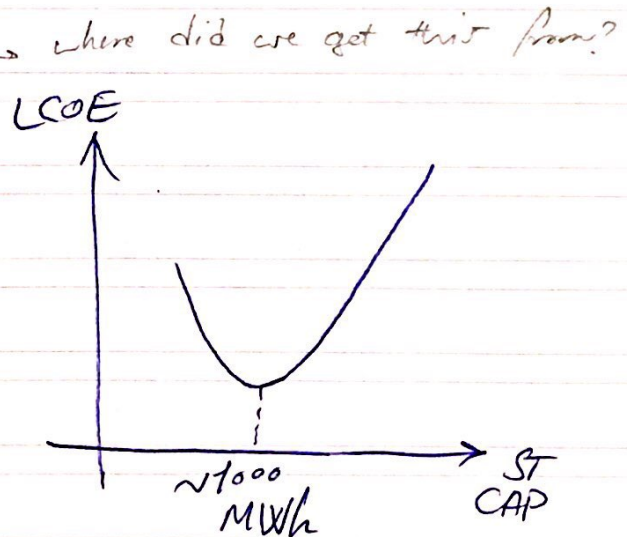 → where did we get this from?
LCOE
~1000
MWh
ST
CAP